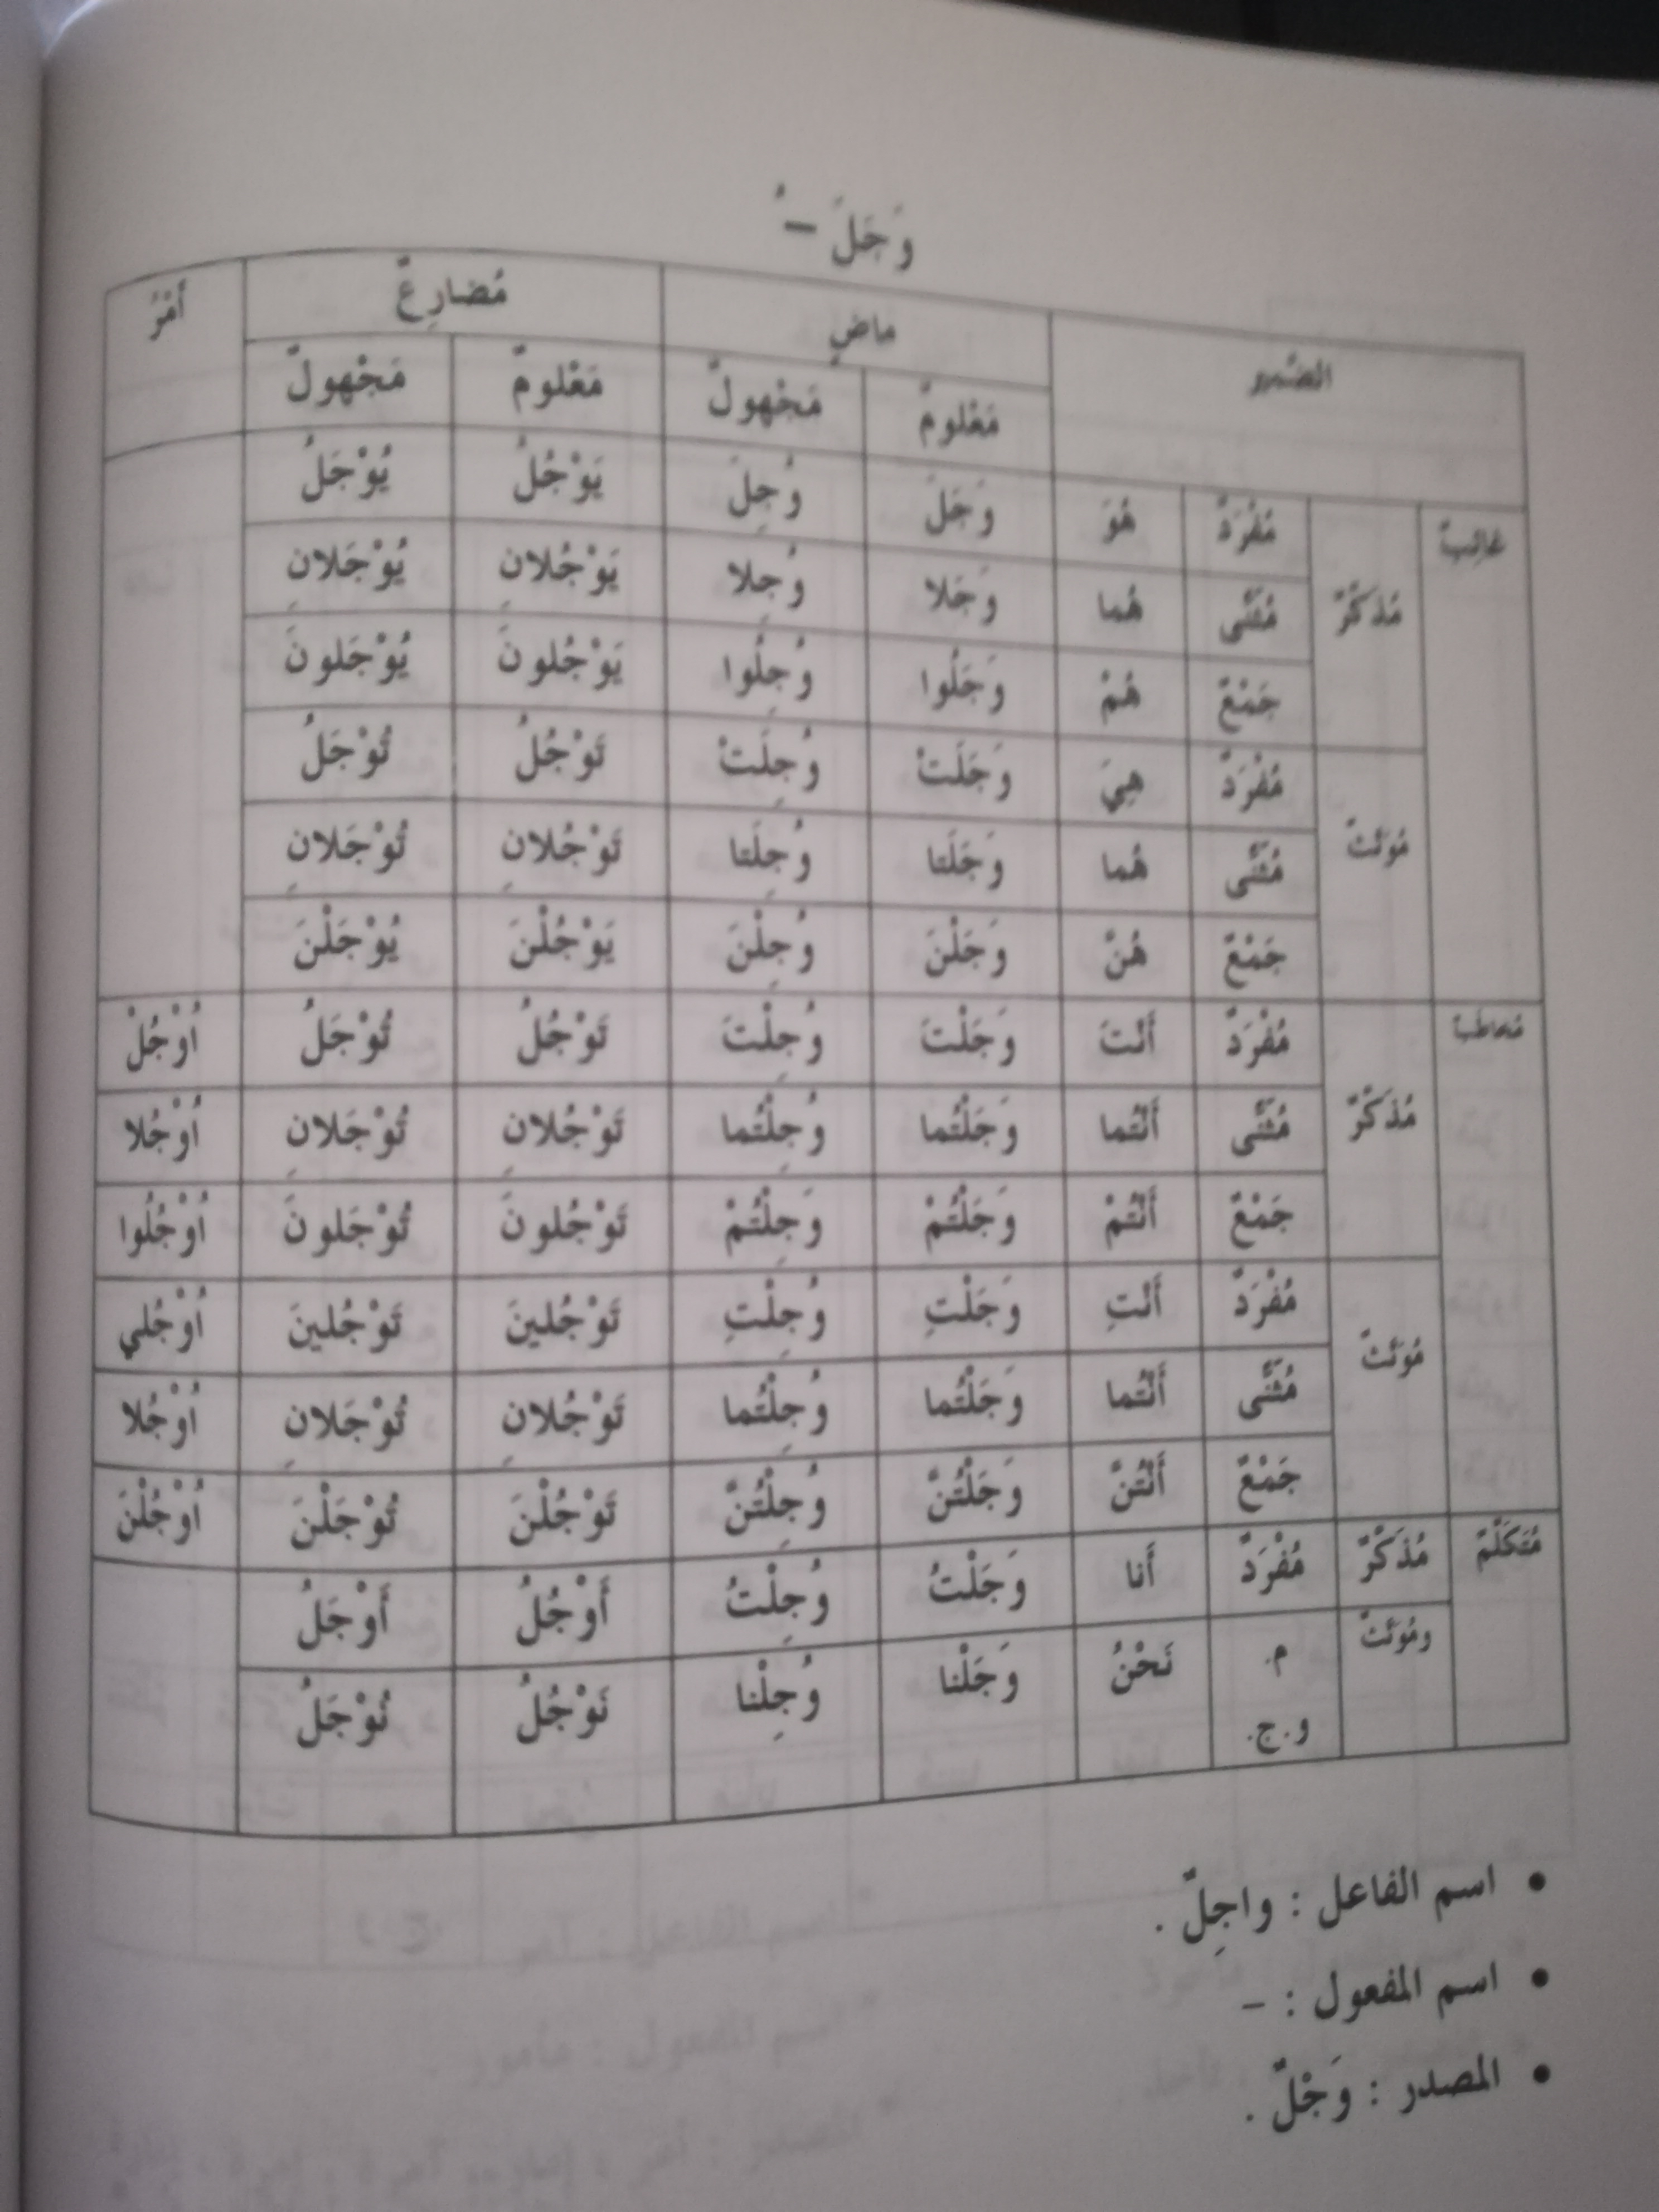 وَجَلَ –ُ
الضّمير ماضٍ مُضارِعٌ أَمْرٌ
مَعْلومٌ مَجْهولٌ مَعْلومٌ مَجْهولٌ
غائِبٌ مُذَكَّرٌ مُفْرَدٌ هُوَ وَجَلَ وُجِلَ يَوْجُلُ يُوْجَلُ
مُثَنًّى هُما وَجَلا وُجِلا يَوْجُلانِ يُوْجَلانِ
جَمْعٌ هُمْ وَجَلُوا وُجِلُوا يَوْجُلونَ يُوْجَلونَ
مُؤَنَّثٌ مُفْرَدٌ هِيَ وَجَلَتْ وُجِلَتْ تَوْجُلُ تُوْجَلُ
مُثَنًّى هُما وَجَلَتا وُجِلَتا تَوْجُلانِ تُوْجَلانِ
جَمْعٌ هُنَّ وَجَلْنَ وُجِلْنَ يَوْجُلْنَ يُوْجَلْنَ
مُخاطَبٌ مُذَكَّرٌ مُفْرَدٌ أَنْتَ وَجَلْتَ وُجِلْتَ تَوْجُلُ تُوْجَلُ اُوْجُلْ
مُثَنًّى أَنْتُما وَجَلْتُما وُجِلْتُما تَوْجُلانِ تُوْجَلانِ اُوْجُلا
جَمْعٌ أَنْتُمْ وَجَلْتُمْ وَجِلْتُمْ تَوْجُلونَ تُوْجَلونَ اُوْجُلُوا
مُؤَنَّثٌ مُفْرَدٌ أَنْتِ وَجَلْتِ وُجِلْتِ تَوْجُلينَ تَوْجُلينَ اُوْجُلي
مُثَنًّى أَنْتُما وَجَلْتُما وُجِلْتُما تَوْجُلانِ تُوْجَلانِ اُوْجُلا
جَمْعٌ أَنْتُنَّ وَجَلْتُنَّ وُجِلْتُنَّ تَوْجُلْنَ تُوْجَلْنَ اُوْجُلْنَ
مُتَكَلِّمٌ مُذَكَّرٌ مُفْرَدٌ أَنا وَجَلْتُ وُجِلْتُ أَوْجُلُ أَوْجَلُ
ومُؤَنَّثٌ م. نَحْنُ وَجَلْنا وُجِلْنا نَوْجُلُ نُوْجَلُ
و.ج.
• اسم الفاعل : واجِلٌ .
• اسم المفعول : –
• المصدر : وَجْلٌ .